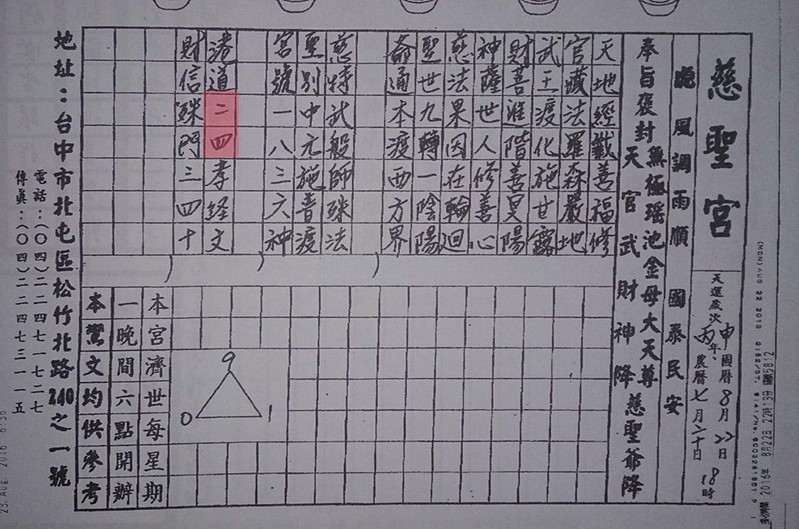 慈聖宮
天運歲次丙申年 國曆8月22日
農曆七月二十日 18時
風調雨順 國泰民安
奉旨褒封無極瑤池金母大天尊 慈聖爺降
天官武財神降
天地經懺善福修
官藏法羅森嚴地
武王渡化施甘露
財善准階善昊陽
神薩世人修善心
慈法果因在輪迴
聖世九轉一陰陽
爺通本渡西方界
慈特武般師殊法
聖別中元施普渡
宮號一八三六神
港道二四孝經文
財信殊門三四十
9
0 1
本宮濟世每星期
一晚間六點開辦
本鸞文均供參考
地址：台中市北屯區松竹北路240之一號
電話：(04)二二四七一七二七
傳真：(04)二二四七三一一五
2016年 8月22日 22時13分
23. Aug. 2016